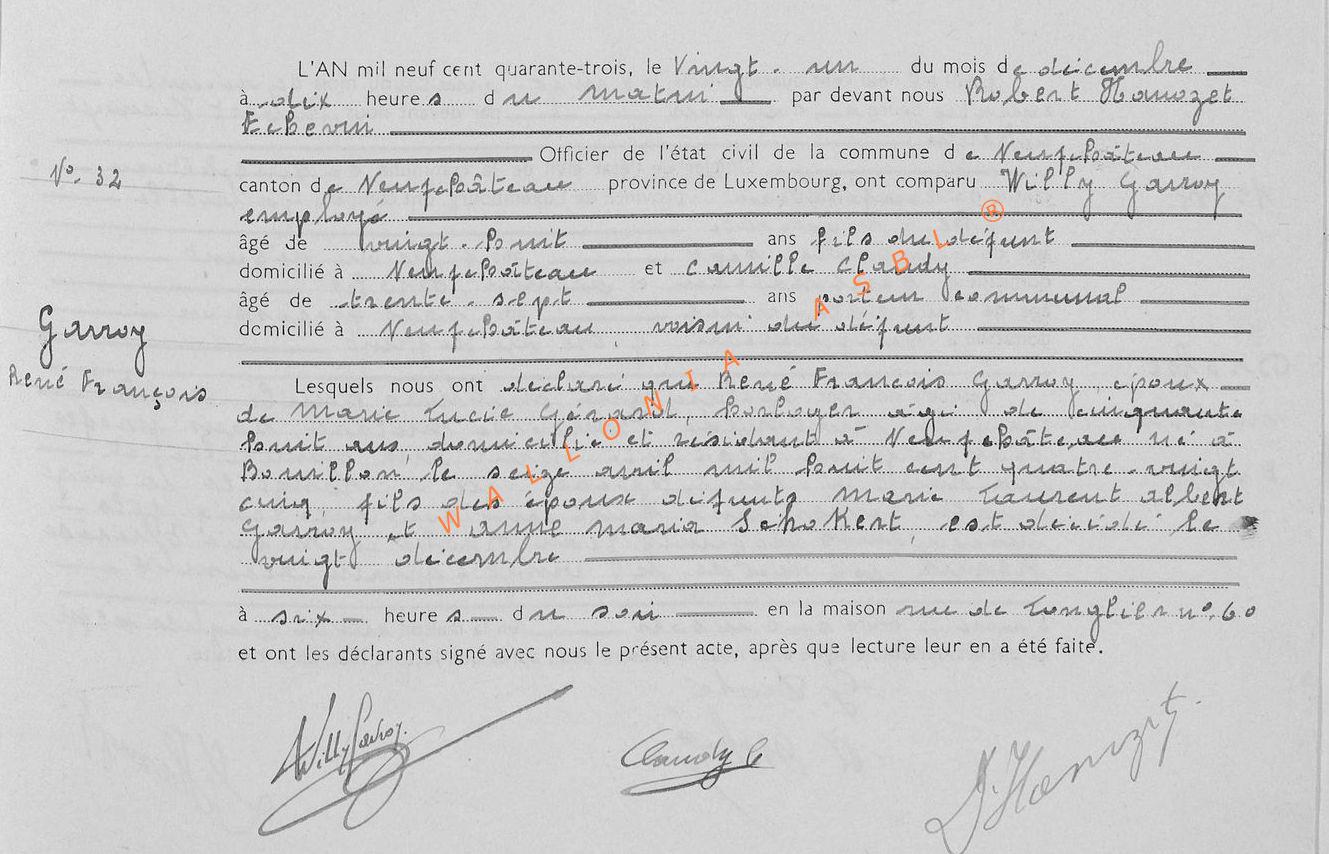 L'AN mil neuf cent quarante-trois, le Vingt-un du mois de décembre
à dix heures du matin par devant nous Robert Hanozet
Echevin
Officier de l'état civil de la commune de Neufchâteau
N°. 32
canton de Neufchâteau province de Luxembourg, ont comparu Willy Garroy
employé
âgé de vingt-huit ans fils du défunt
domicilié à Neufchâteau et Camille Claudy
âgé de trente-sept ans communal
domicilié à Neufchâteau voisin du défunt
Garroy
René François
Lesquels nous ont déclaré que René François Garroy époux
de Marie Lucie Gérard, horloger âgé de cinquante
huit ans, domicilié et résidant à Neufchâteau né à
Bouillon le seize avril mil huit cent quatre-vingt
cinq, fils des époux défunts Marie Laurent Albert
Garroy et Anne Maria Schokert, est décédé le
vingt décembre
à six heures du soir en la maison rue de Longlier n°. 60
et ont les déclarants signé avec nous le présent acte, après que lecture leur en a été faite.
Willy Garroy Claudy C Hanozet
WALLONIA ASBL ®